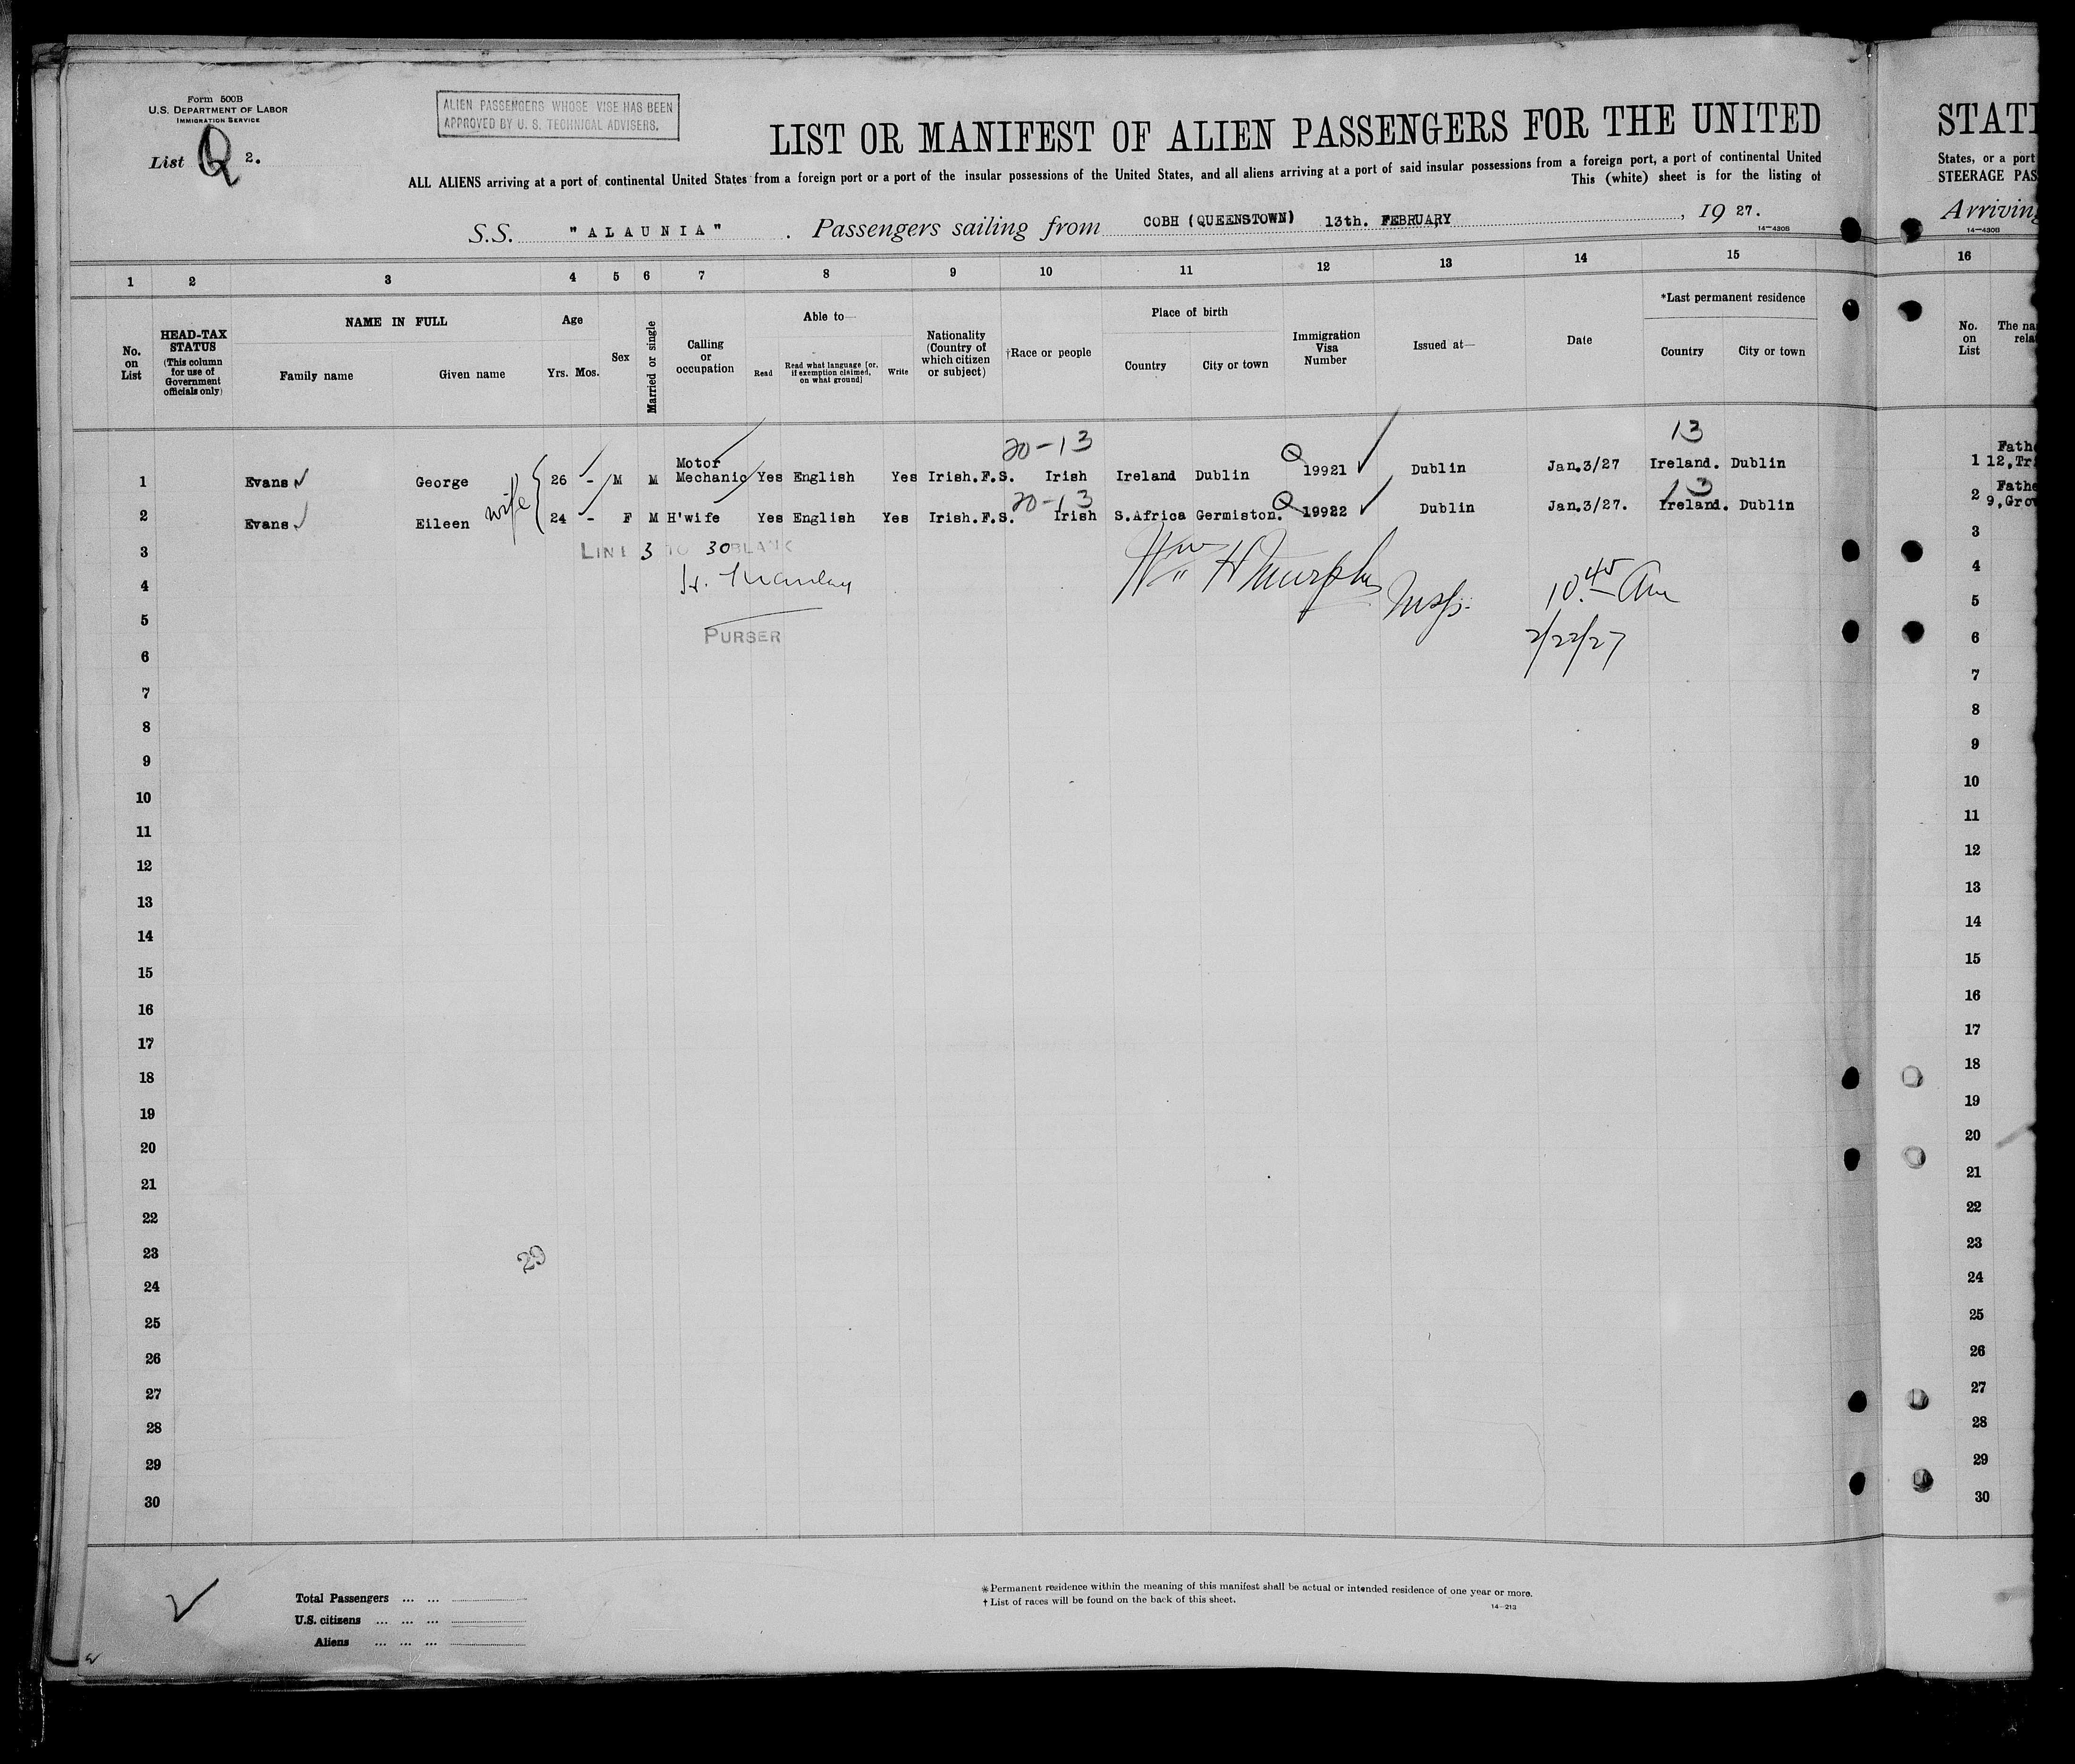 Form 500B
U.S. DEPARTMENT OF LABOR
IMMIGRATION SERVICE
List Q 2.
ALIEN PASSENGERS WHOSE VISE HAS BEEN
APPROVED BY U. S. TECHNICAL ADVISERS.
LIST OR MANIFEST OF ALIEN PASSENGERS FOR THE UNITED
ALL ALIENS arriving at a port of continental United States from a foreign port or a port of the insular possessions of the United States, and all aliens arriving at a port of said insular possessions from a foreign port, a port of continental United
This (white) sheet is for the listing of
S.S. "ALAUNIA" . Passengers sailing from COBH (QUEENSTOWN) 13th. FEBRUARY , 19 27.
14—430B
STATI
States, or a port
STEERAGE PAS
Arriving
14—430B
1 2 3 4 5 6 7 8 9 10 11 12 13 14 15 16
No. on List
HEAD-TAX STATUS (This column for use of Government officials only)
NAME IN FULL
Family name Given name
Age
Yrs. Mos.
Sex
Married or single
Calling or occupation
Able to—
Read Read what language [or, if exemption claimed, on what ground] Write
Nationality (Country of which citizen or subject)
†Race or people
Place of birth
Country City or town
Immigration Visa Number
Issued at—
Date
*Last permanent residence
Country City or town
No. on List
The na
rela
20-13 13
1 Evans George 26 - M M Motor Mechanic Yes English Yes Irish.F.S. Irish Ireland Dublin Q 19921 Dublin Jan.3/27 Ireland. Dublin
1 Fathe
12,Tr
wife
20-13 13
2 Evans Eileen 24 - F M H'wife Yes English Yes Irish.F.S. Irish S.Africa Germiston. Q 19922 Dublin Jan.3/27. Ireland. Dublin
2 Fathe
9,Gro
3 LINE 3 TO 30 BLANK 3
4 Wm H Murphy Insp. 10.45 Am 4
5 PURSER 2/22/27 5
6 6
7 7
8 8
9 9
10 10
11 11
12 12
13 13
14 14
15 15
16 16
17 17
18 18
19 19
20 20
21 21
22 22
23 29 23
24 24
25 25
26 26
27 27
28 28
29 29
30 30
Total Passengers ... ...
U.S. citizens ... ... ...
Aliens ... ... ...
* Permanent residence within the meaning of this manifest shall be actual or intended residence of one year or more.
† List of races will be found on the back of this sheet.
14—213